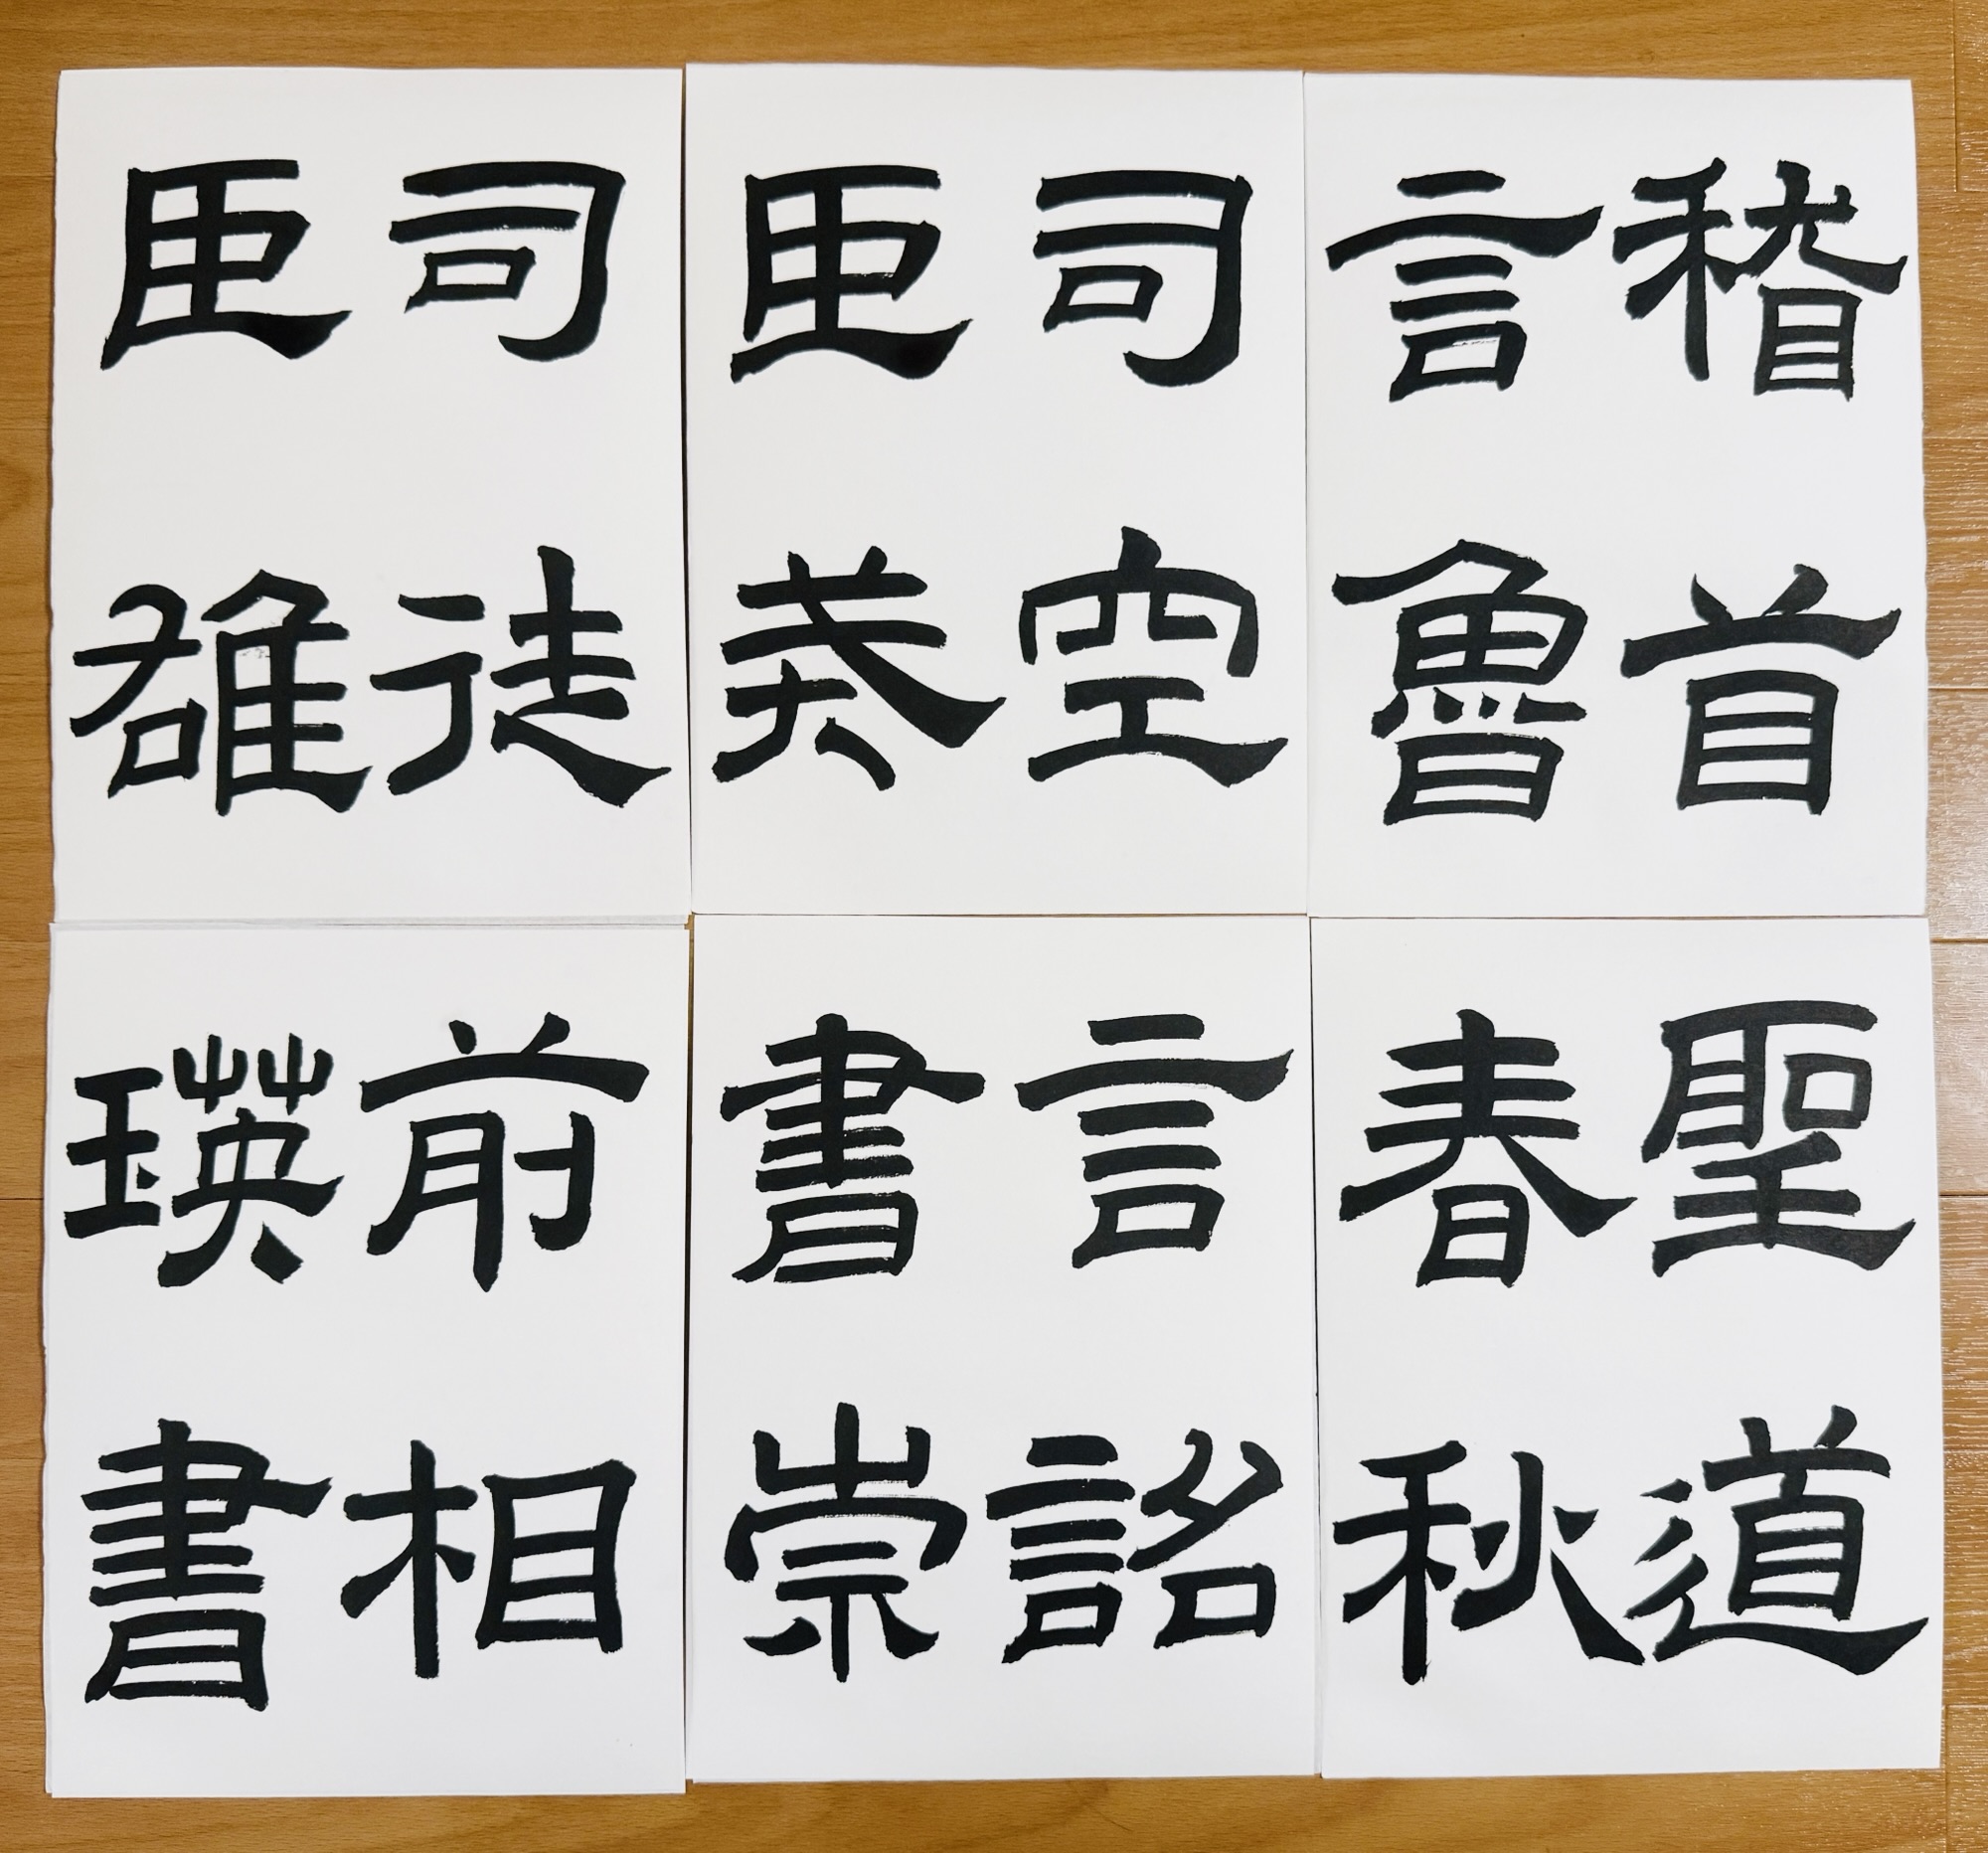 司徒
臣雄
司空
臣戒
稽首
言魯
前相
瑛書
言詔
書崇
聖道
春秋